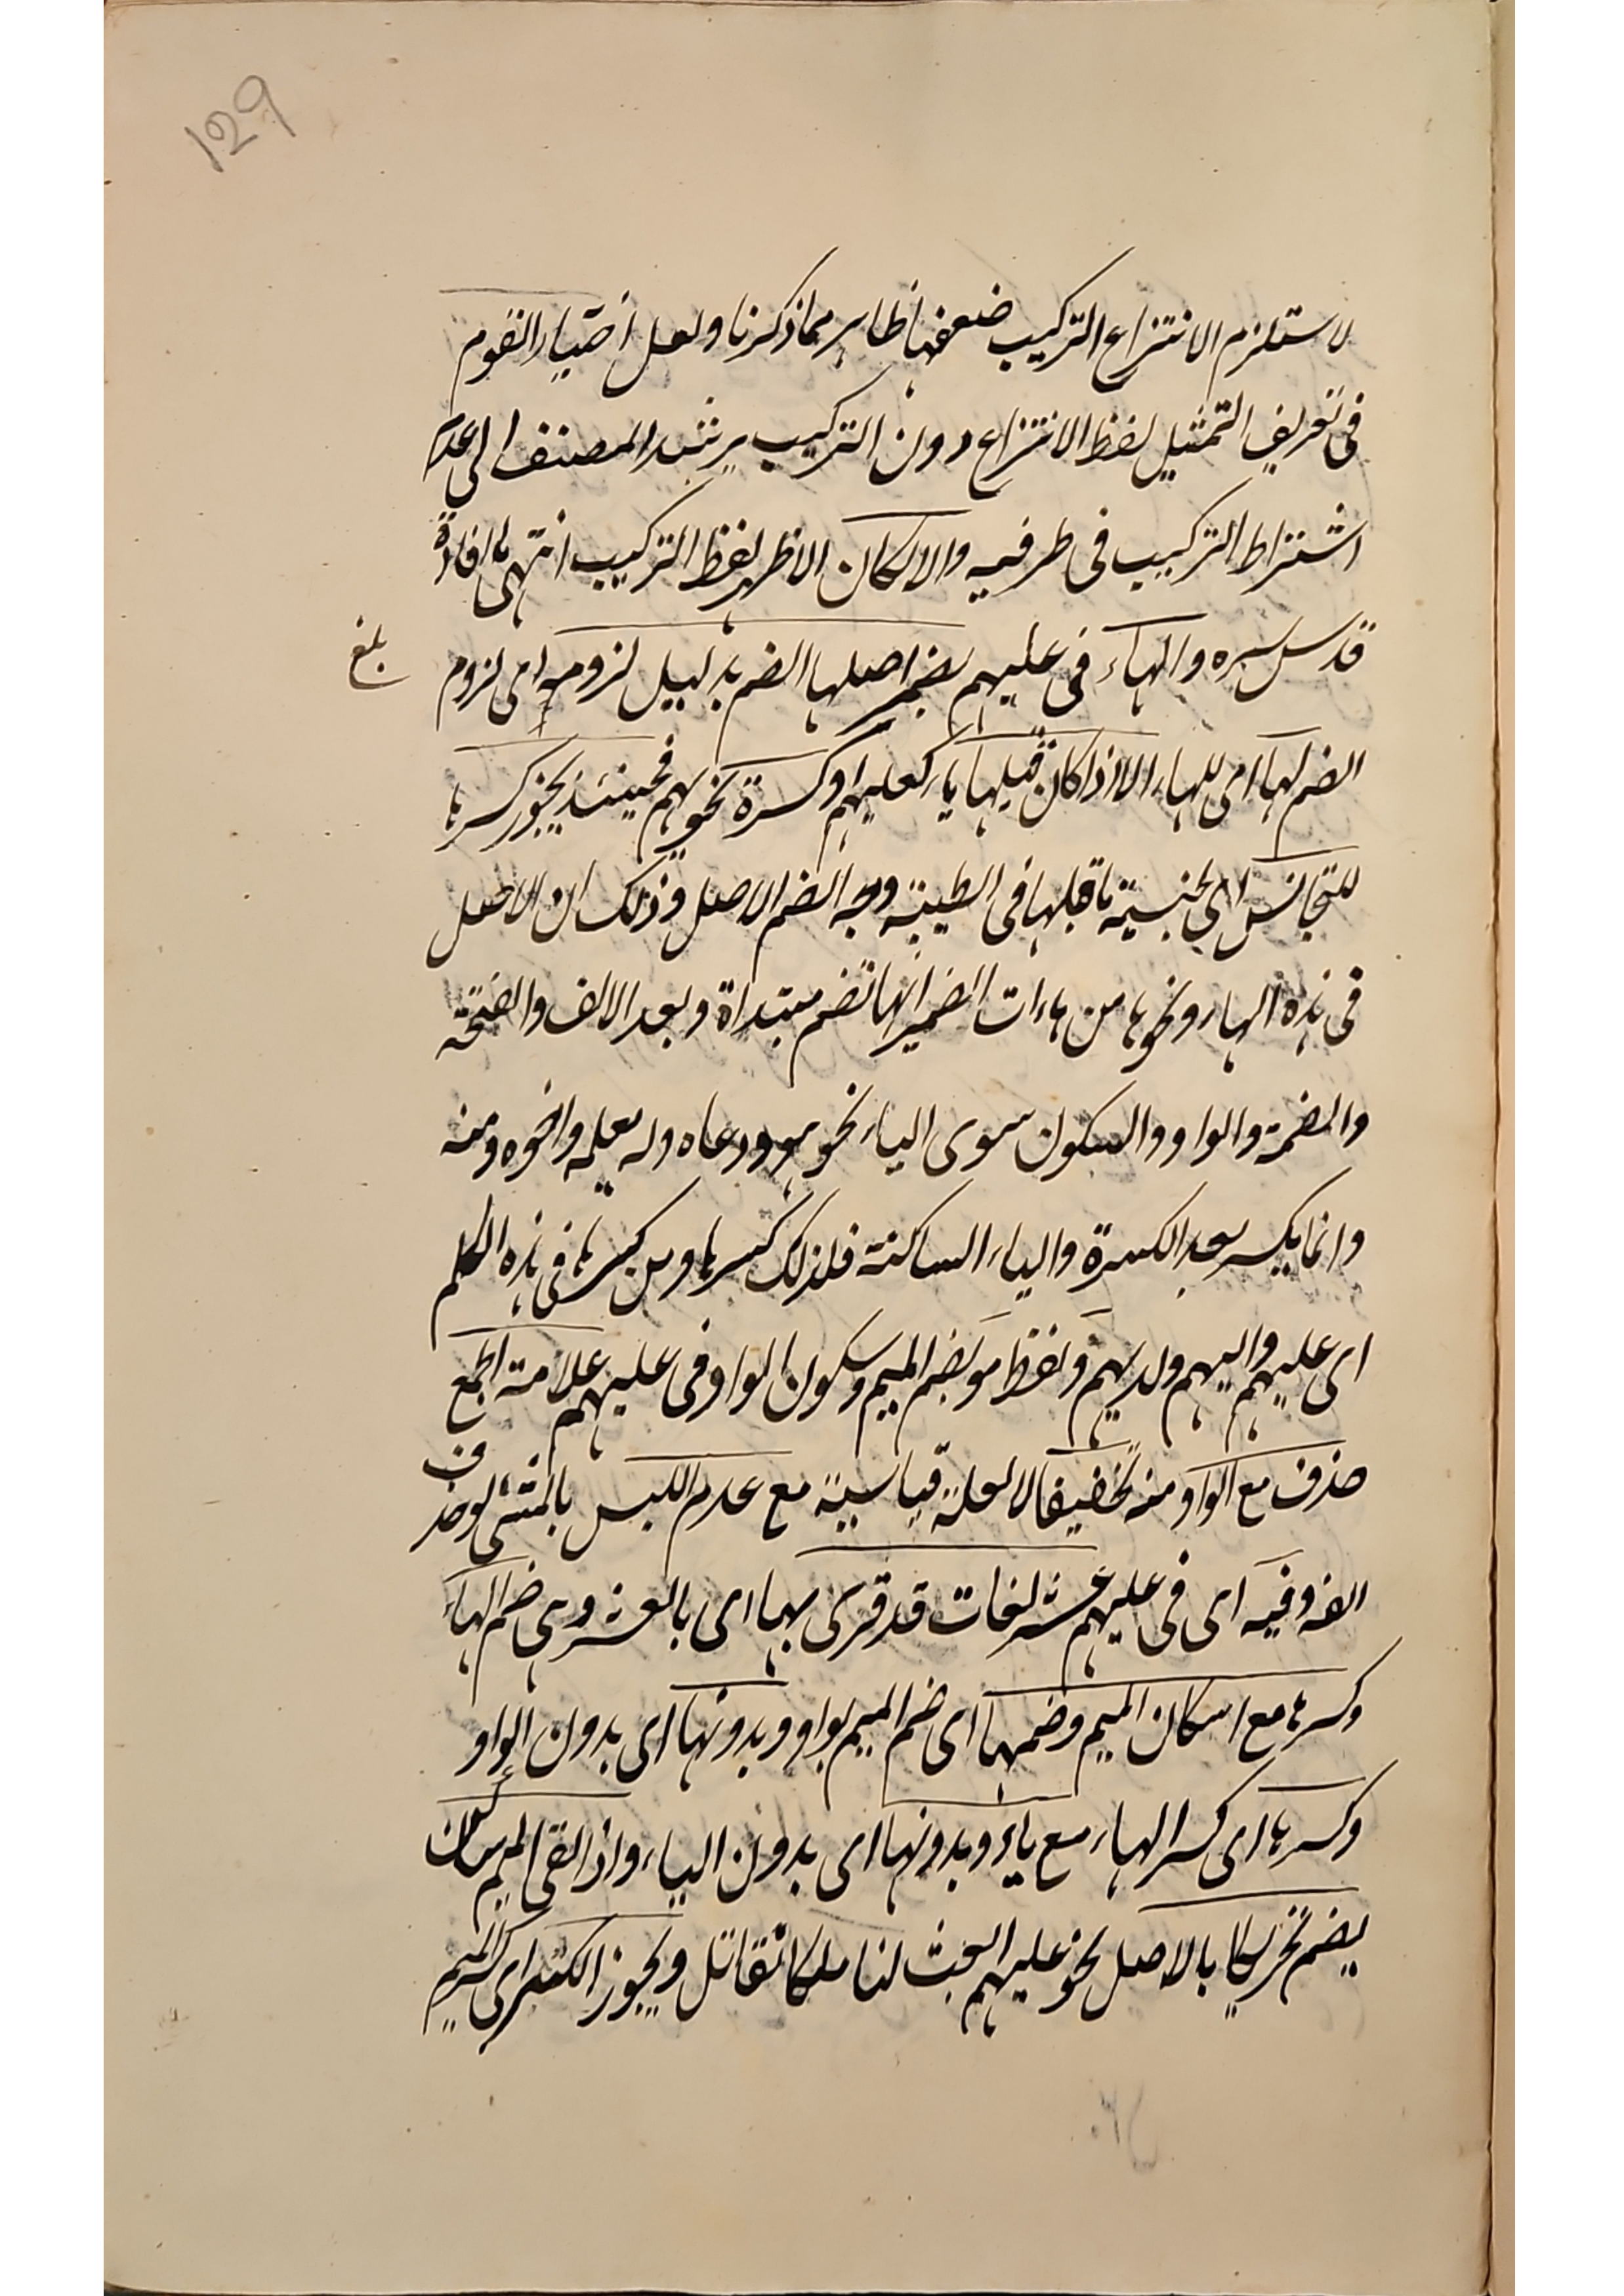 129
لاستلزم الانتزاع التركيب ضعفها ظاهر مما ذكرنا ولعل اختيار القوم
فى تعريف التمثيل لفظ الانتزاع دون التركيب يرشد المصنف الى عدم
اشتراط التركيب فى طرفيه والا لكان الاظهر لفظ التركيب انتهى ما افاده
قدس سره والهاء فى عليهم بضم اصلها الضم بدليل لزومه اى لزوم
بلغ
الضم لها اى للهاء الا اذا كان قبلها ياء كعليهم او كسرة نحو بهم فحينئذ يجوز كسرها
للتجانس اى لجنسية ما قبلها فى الطيبة وجه الضم الاصل وذلك ان الاصل
فى هذه الهاء ونحوها من هاءات الضمير انها تضم مبتداة وبعد الالف والفتحة
والضمة والواو والسكون سوى الياء نحو هو ودعاه وله يعلمه واخوه ومنه
وانما يكسر بعد الكسرة والياء الساكنة فلذلك كسرها من كسرها فى هذه الكلم
اى عليهم واليهم ولديهم ولفظ مو بضم الميم وسكون الواو فى عليهم علامة الجمع
حذف مع الواو منه تخفيفا لا لعلة قياسية مع عدم اللبس بالمثنى لو حذف
الفه وفيه اى فى عليهم عشر لغات قد قرى بها اى بالعشر وهى ضم الهاء
وكسرها مع اسكان الميم وضمها اى ضم الميم بواو وبدونها اى بدون الواو
وكسرها اى كسر الهاء مع ياء وبدونها اى بدون الياء واذا لقى الميم ساكن
يضم تحريكا بالاصل نحو عليهم ابعث لنا ملكا نقاتل ويجوز الكسر اى كسر الميم